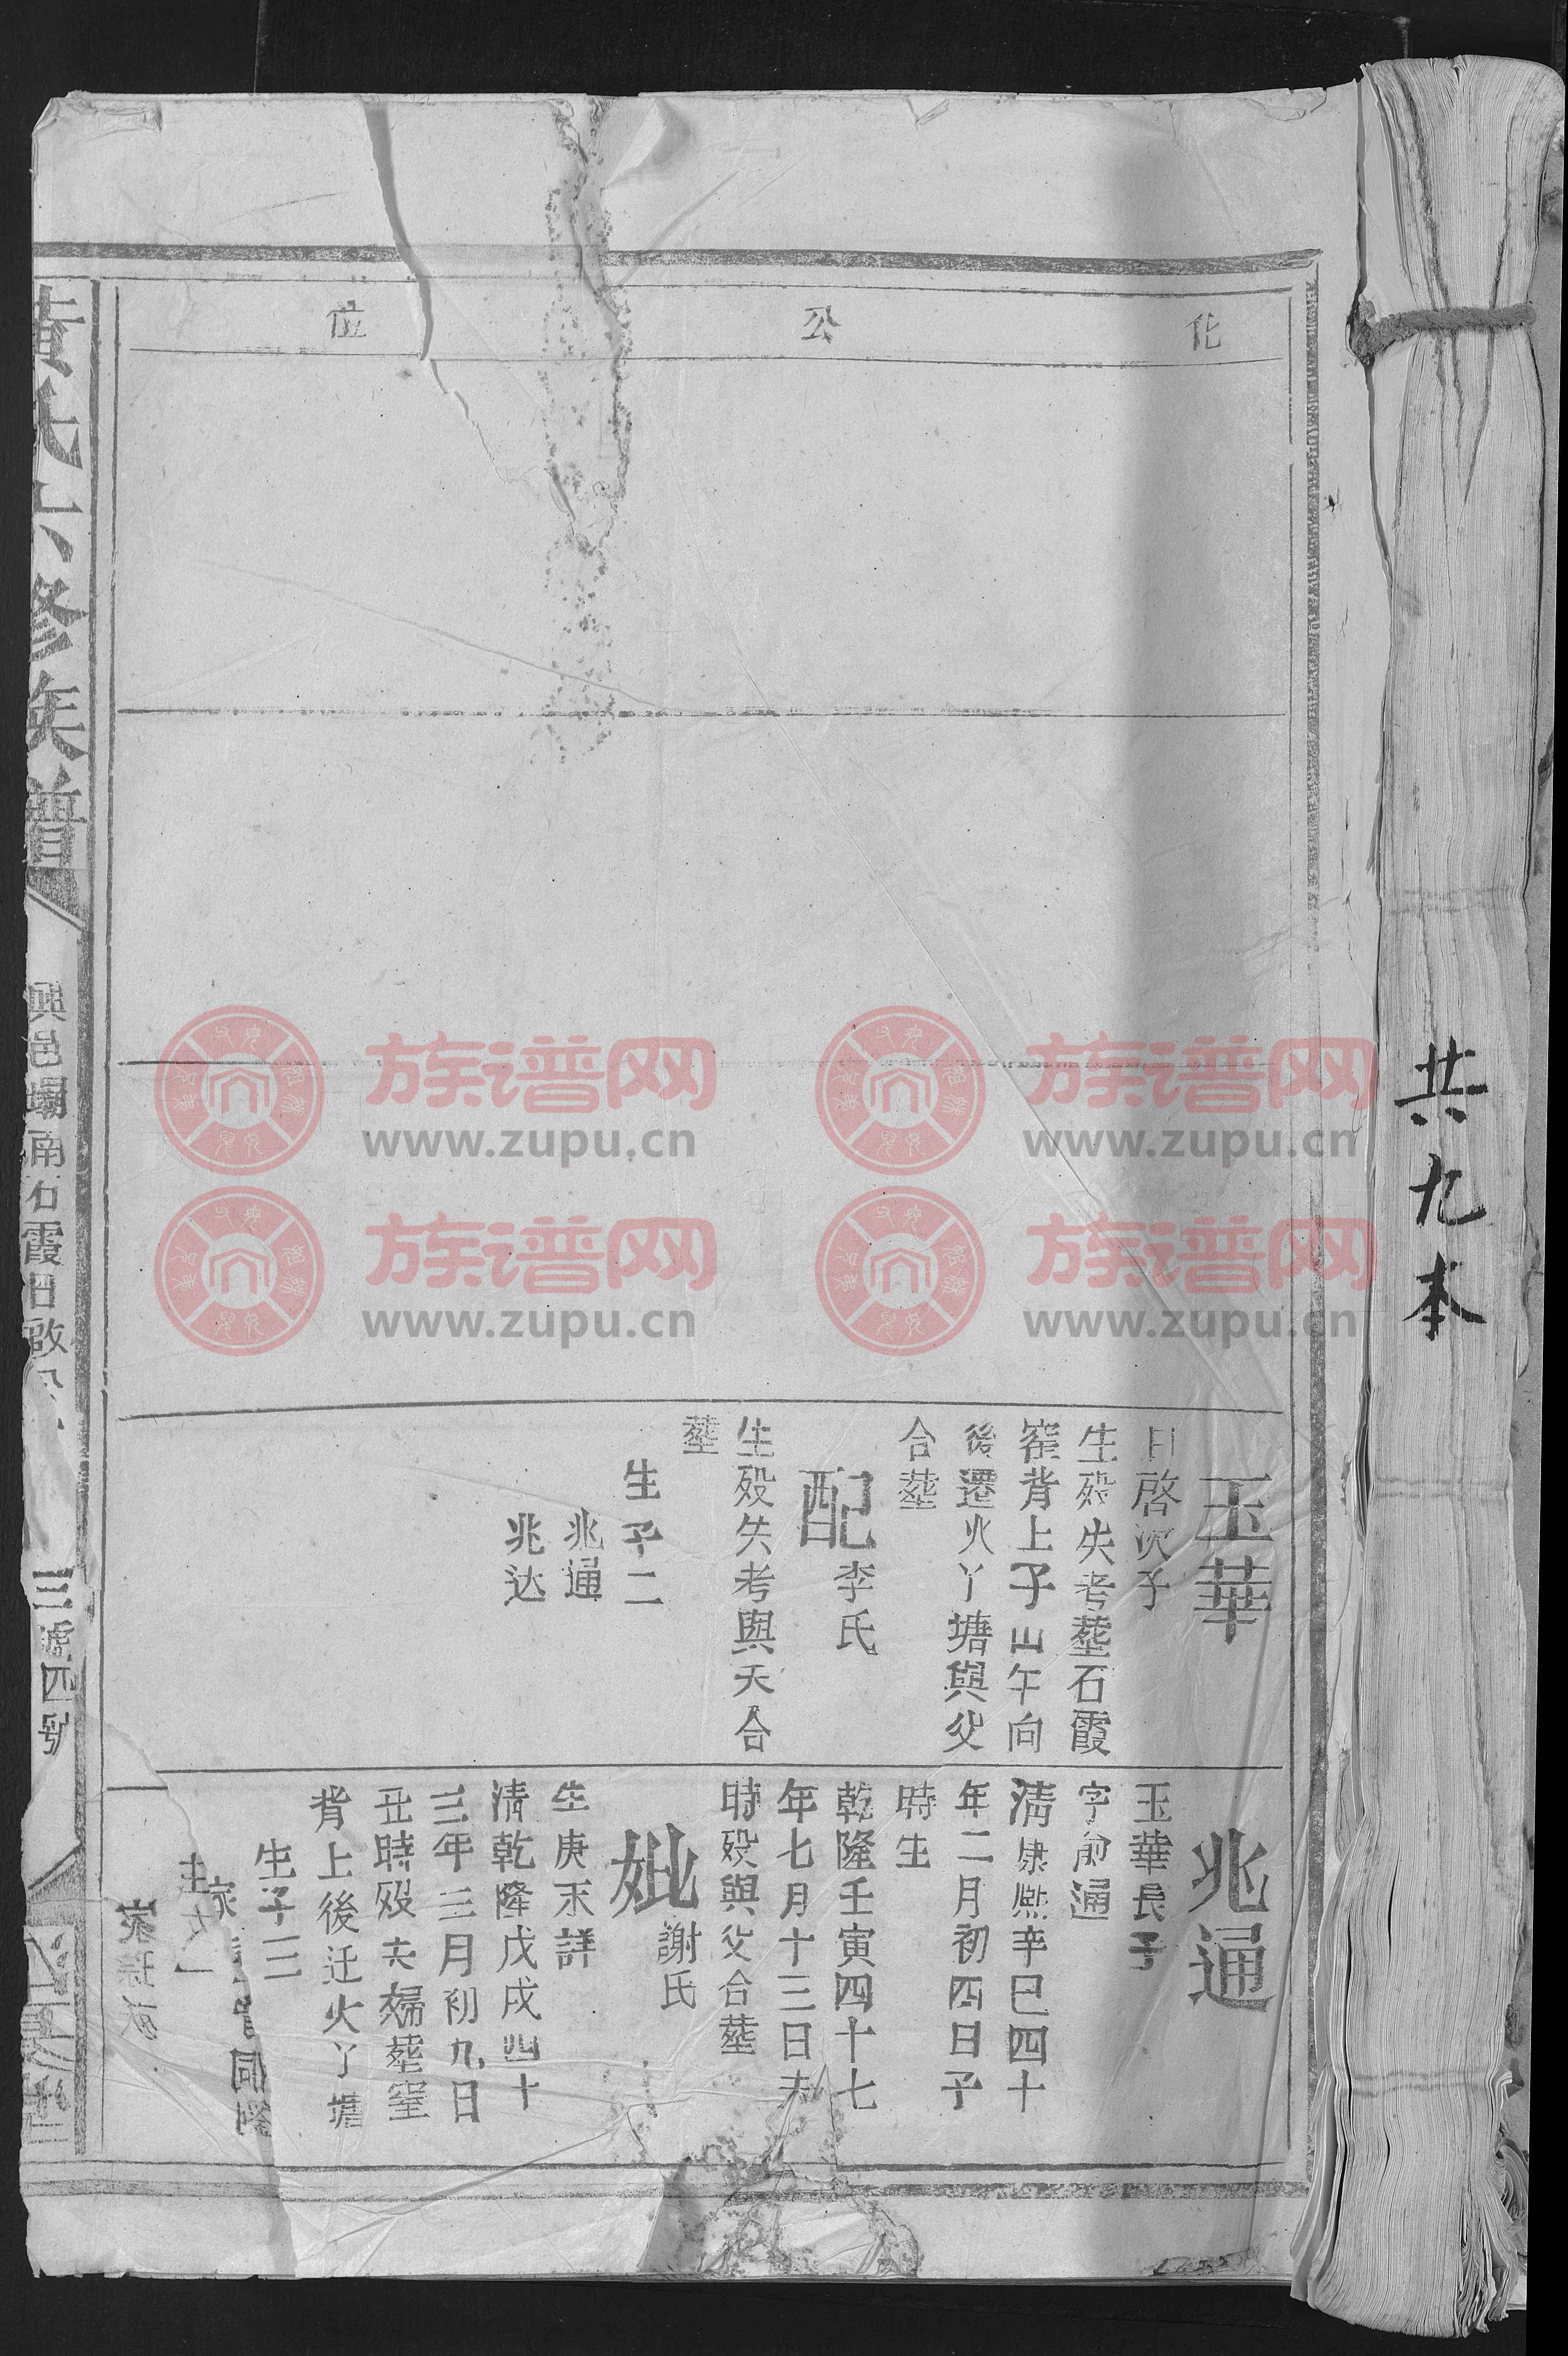 化公位
玉華
日啓次子
生殁失考塟石霞
窰背上子山午向
後遷火丫塘與父
合塟
配李氏
生殁失考與夫合
塟
生子二
兆通
兆达
兆通
玉華長子
字俞通
清康熙辛巳四十
年二月初四日子
時生
乾隆壬寅四十七
年七月十三日未
時殁與父合塟
妣謝氏
生庚未詳
清乾隆戊戌四十
三年三月初九日
丑時殁夫婦塟窰
背上後迁火丫塘
生子二
生女一
黃氏六修族譜
興邑塌南石霞日啟
三號四號
共九本
族谱网
www.zupu.cn
族谱网
www.zupu.cn
族谱网
www.zupu.cn
族谱网
www.zupu.cn